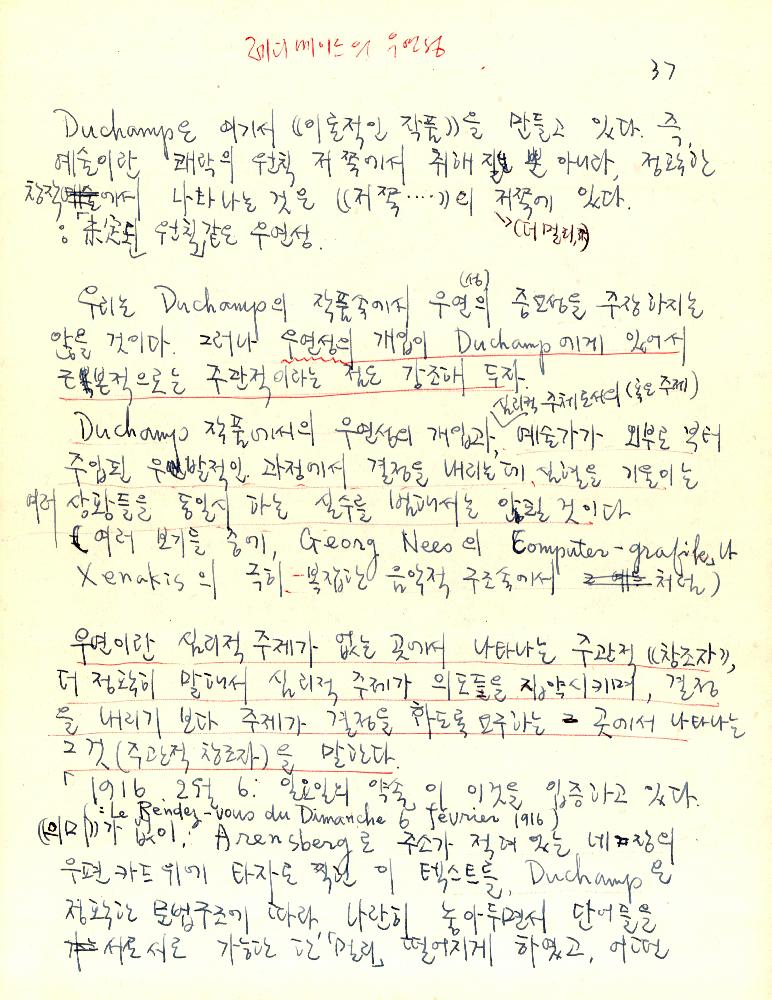 레디메이드의 우연성
37
Duchamp은 여기서 《이론적인 작품》을 만들고 있다. 즉,
예술이란 쾌락의 원칙 저쪽에서 취해질 뿐 아니라, 정확한
창작에서 나타나는 것은 《저쪽....》의 저쪽에 있다.
(더 멀리,
: 「未完된 원칙」같은 우연성.
(성)
우리는 Duchamp의 작품속에서 우연의 중요성을 주장하지는
않을 것이다. 그러나 우연성의 개입이 Duchamp에게 있어서
근본적으로는 주관적이라는 점도 강조해 두자.
심리적 주체로서의 (혹은 주제)
Duchamp 작품에서의 우연성의 개입과, 예술가가 외부로 부터
주입된 우발적인 과정에서 결정을 내리는데 심혈을 기울이는
여러 상황들을 동일시 하는 실수를 범해서는 안될 것이다
(여러 보기들 중에, Georg Nees의 Computer-grafik」나
Xenakis의 극히 복잡한 음악적 구조속에서 처럼)
우연이란 심리적 주제가 없는 곳에서 나타나는 주관적 《창조자》,
더 정확히 말해서 심리적 주제가 의도들을 집약시키며, 결정
을 내리기 보다 주제가 결정을 하도록 요구하는 곳에서 나타나는
그것(주관적 창조자)을 말한다.
「1916 2월 6: 일요일의 약속」이 이것을 입증하고 있다.
: Le Rendez-vous du Dimanche 6 février 1916)
《의미》가 없이, Arensberg로 주소가 적혀 있는 네장의
우편카드위에 타자로 찍힌 이 텍스트를, Duchamp은
정확한 문법구조에 따라, 나란히 놓아두면서 단어들을
서로서로 가능한 한「멀리」 떨어지게 하였고, 어떤